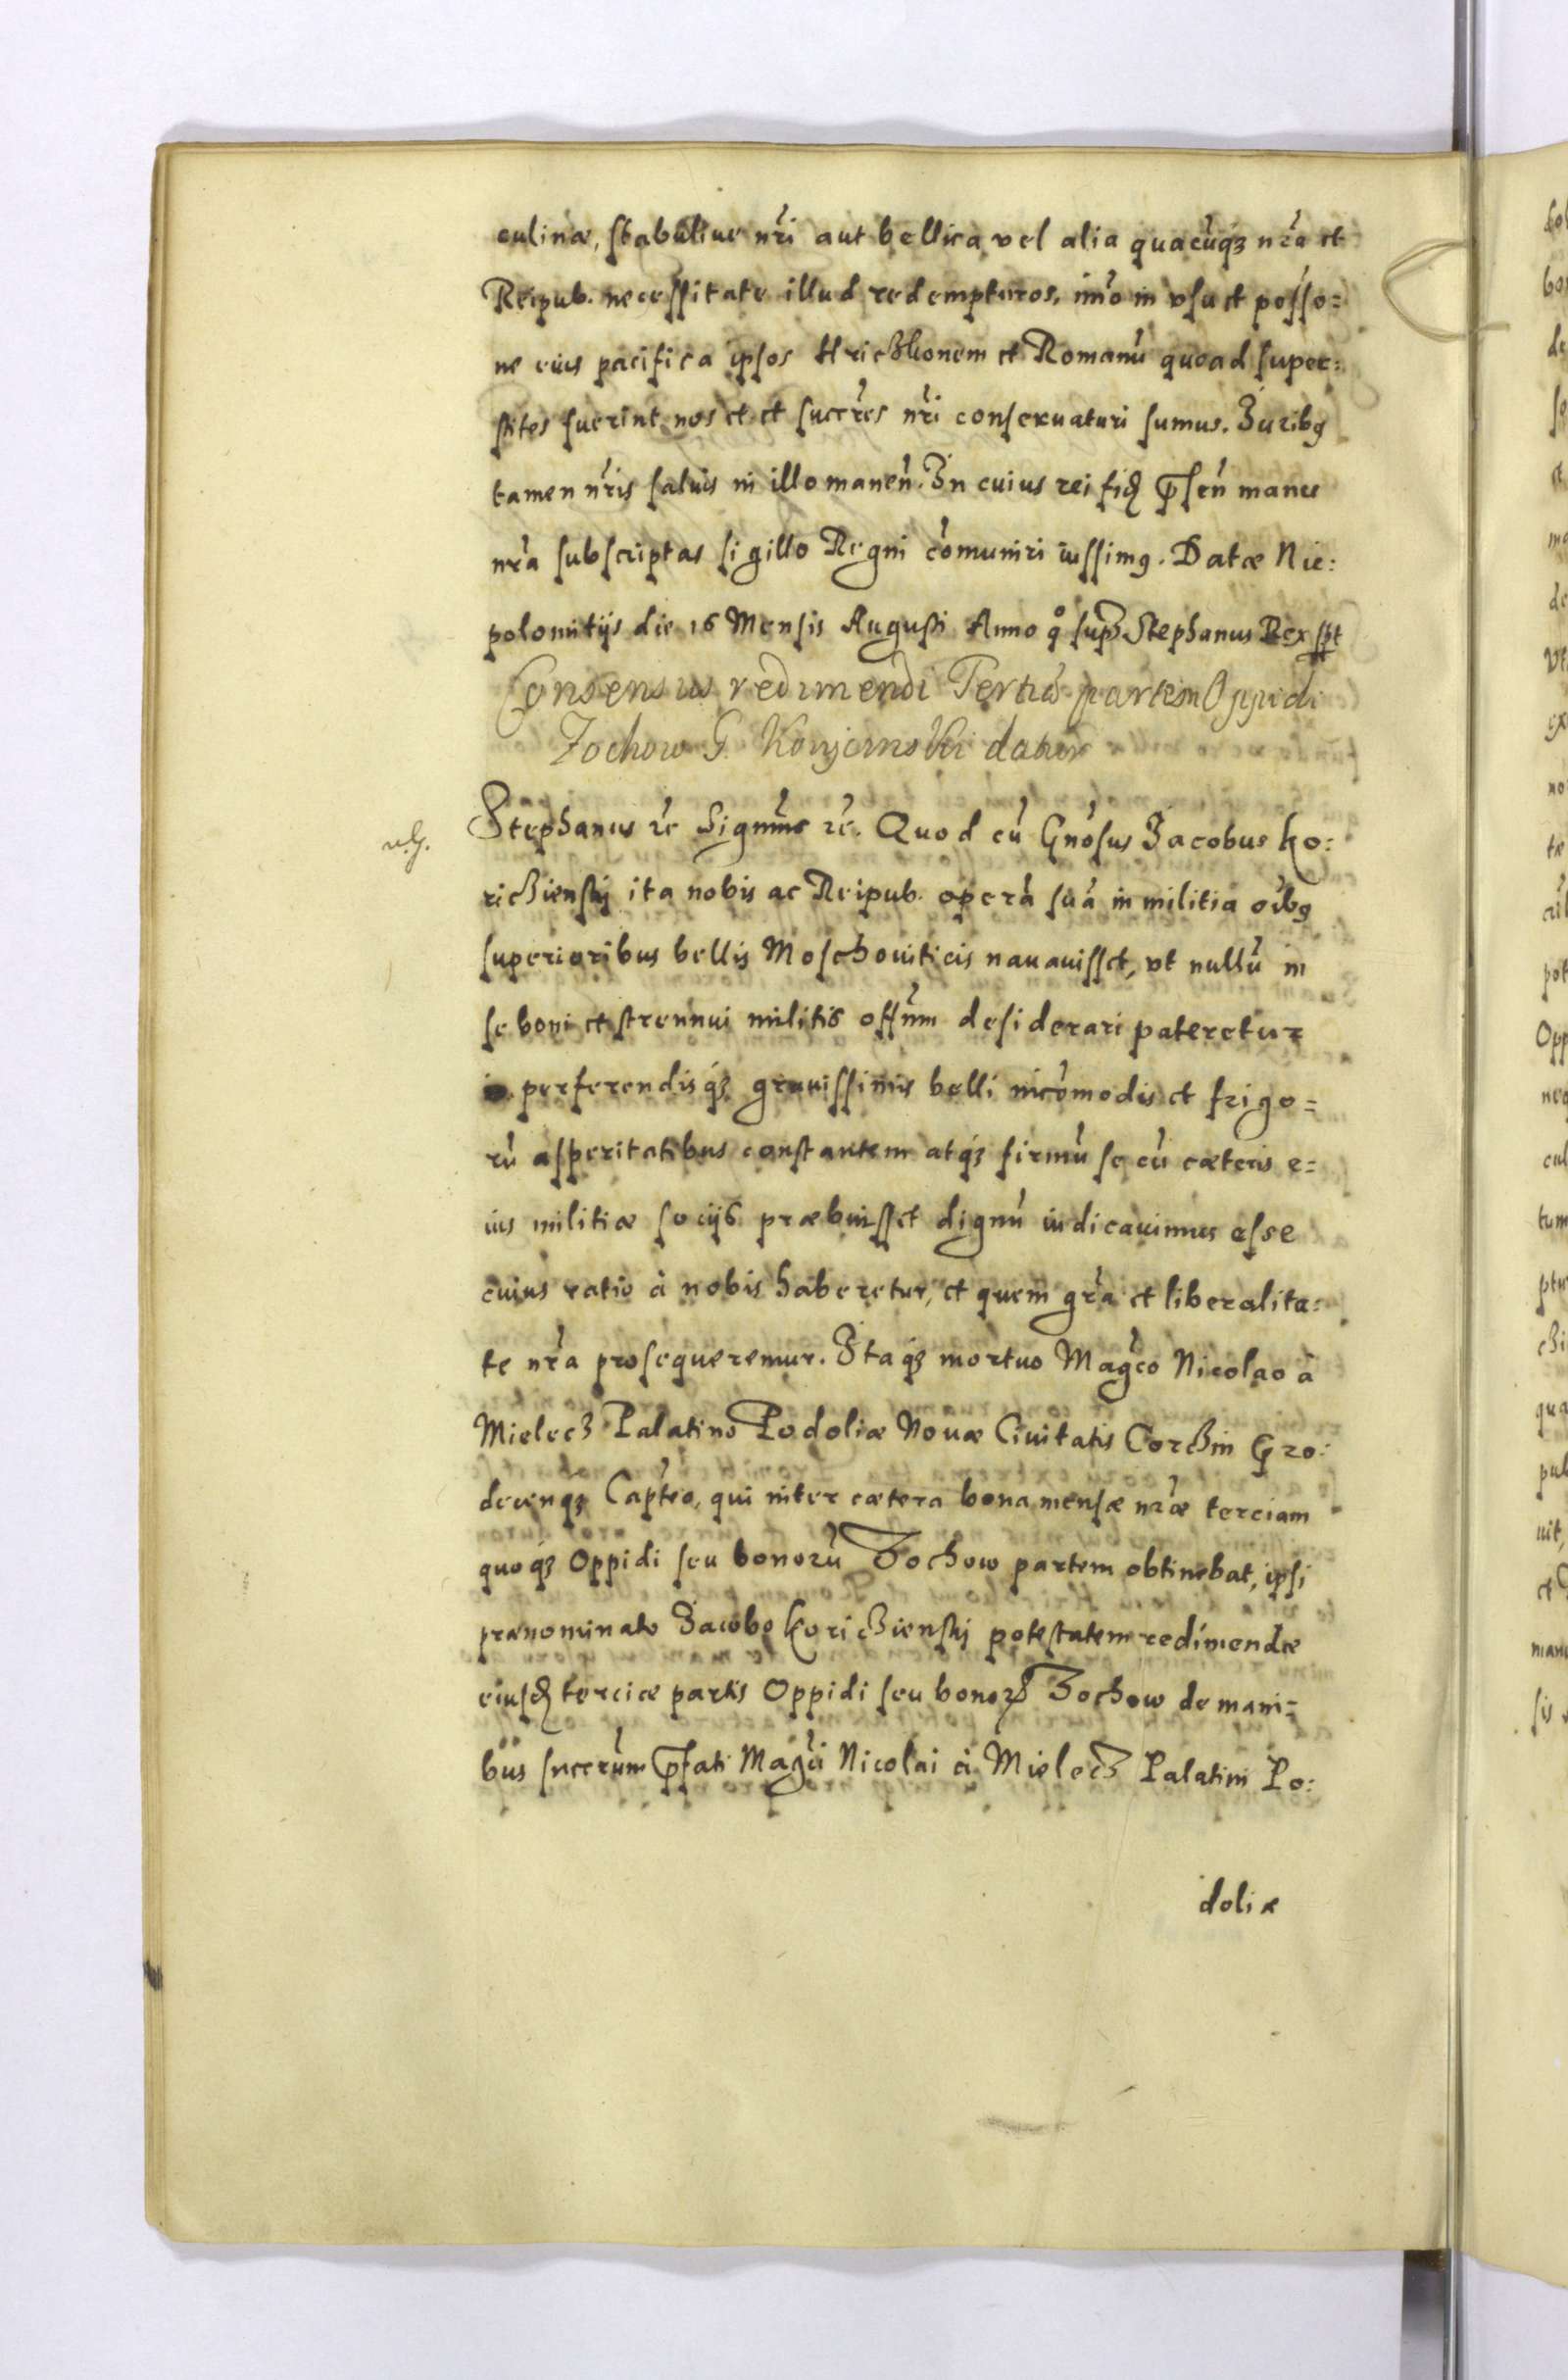 culinæ, stabuliue nr̃i aut bellica vel alia quacũqꝫ nr̃a et
Reipub. necessitate illud redempturos, im̃o in vsu et posso=
ne eius pacifica ipsos Hriczkonem et Romanũ quoad super:
stites fuerint nos et et succr̃es nr̃i conseruaturi sumus. Juribꝰ
tamen nr̃is saluis in illo manen̄. In cuius rei fidꝫ p̄sen̄ manu
nr̃a subscriptas sigillo Regni com̃uniri iussimꝰ. Datæ Nie:
polomitijs die 16 Mensis Augusti Anno qͦ supꝫ Stephanus Rex spt
Consensus redimendi Tertiã partem Oppidi
Zochow G. datur
Stephanus rẽ Signum̃s rẽ. Quod cũ Gnõsus Jacobus Ko:
riczienskj ita nobis ac Reipub. operã suã in militia oĩbꝰ
superioribus bellis Moschouiticis nauauisset, vt nullũ in
se boni et strennui militis offũm desiderari pateretur
perferendisqꝫ grauissimis belli incõmodis et frigo=
rũ asperitatibus constantem atqꝫ firmũ se cũ cæteris e=
ius militiæ socijs præbuisset dignũ iudicauimus esse
cuius ratio à nobis haberetur, et quem gr̃a et liberalita:
te nr̃a prosequeremur. Itaqꝫ mortuo Magc̃o Nicolao à
Mielecz Palatino Podoliæ Nouæ Ciuitatis Corczin Gro:
decenqꝫ Capt̃eo, qui inter cætera bona mensæ nr̃æ terciam
quoqꝫ Oppidi seu bonorũ Zochow partem obtinebat, ipsi
prænominato Jacobo Koriczienskj potestatem redimendæ
eiusdꝫ terciæ partis Oppidi seu bonorꝝ Zochow de mani=
bus succr̃um p̄fati Magc̃i Nicolai à Mielecz Palatini Po:
doliæ